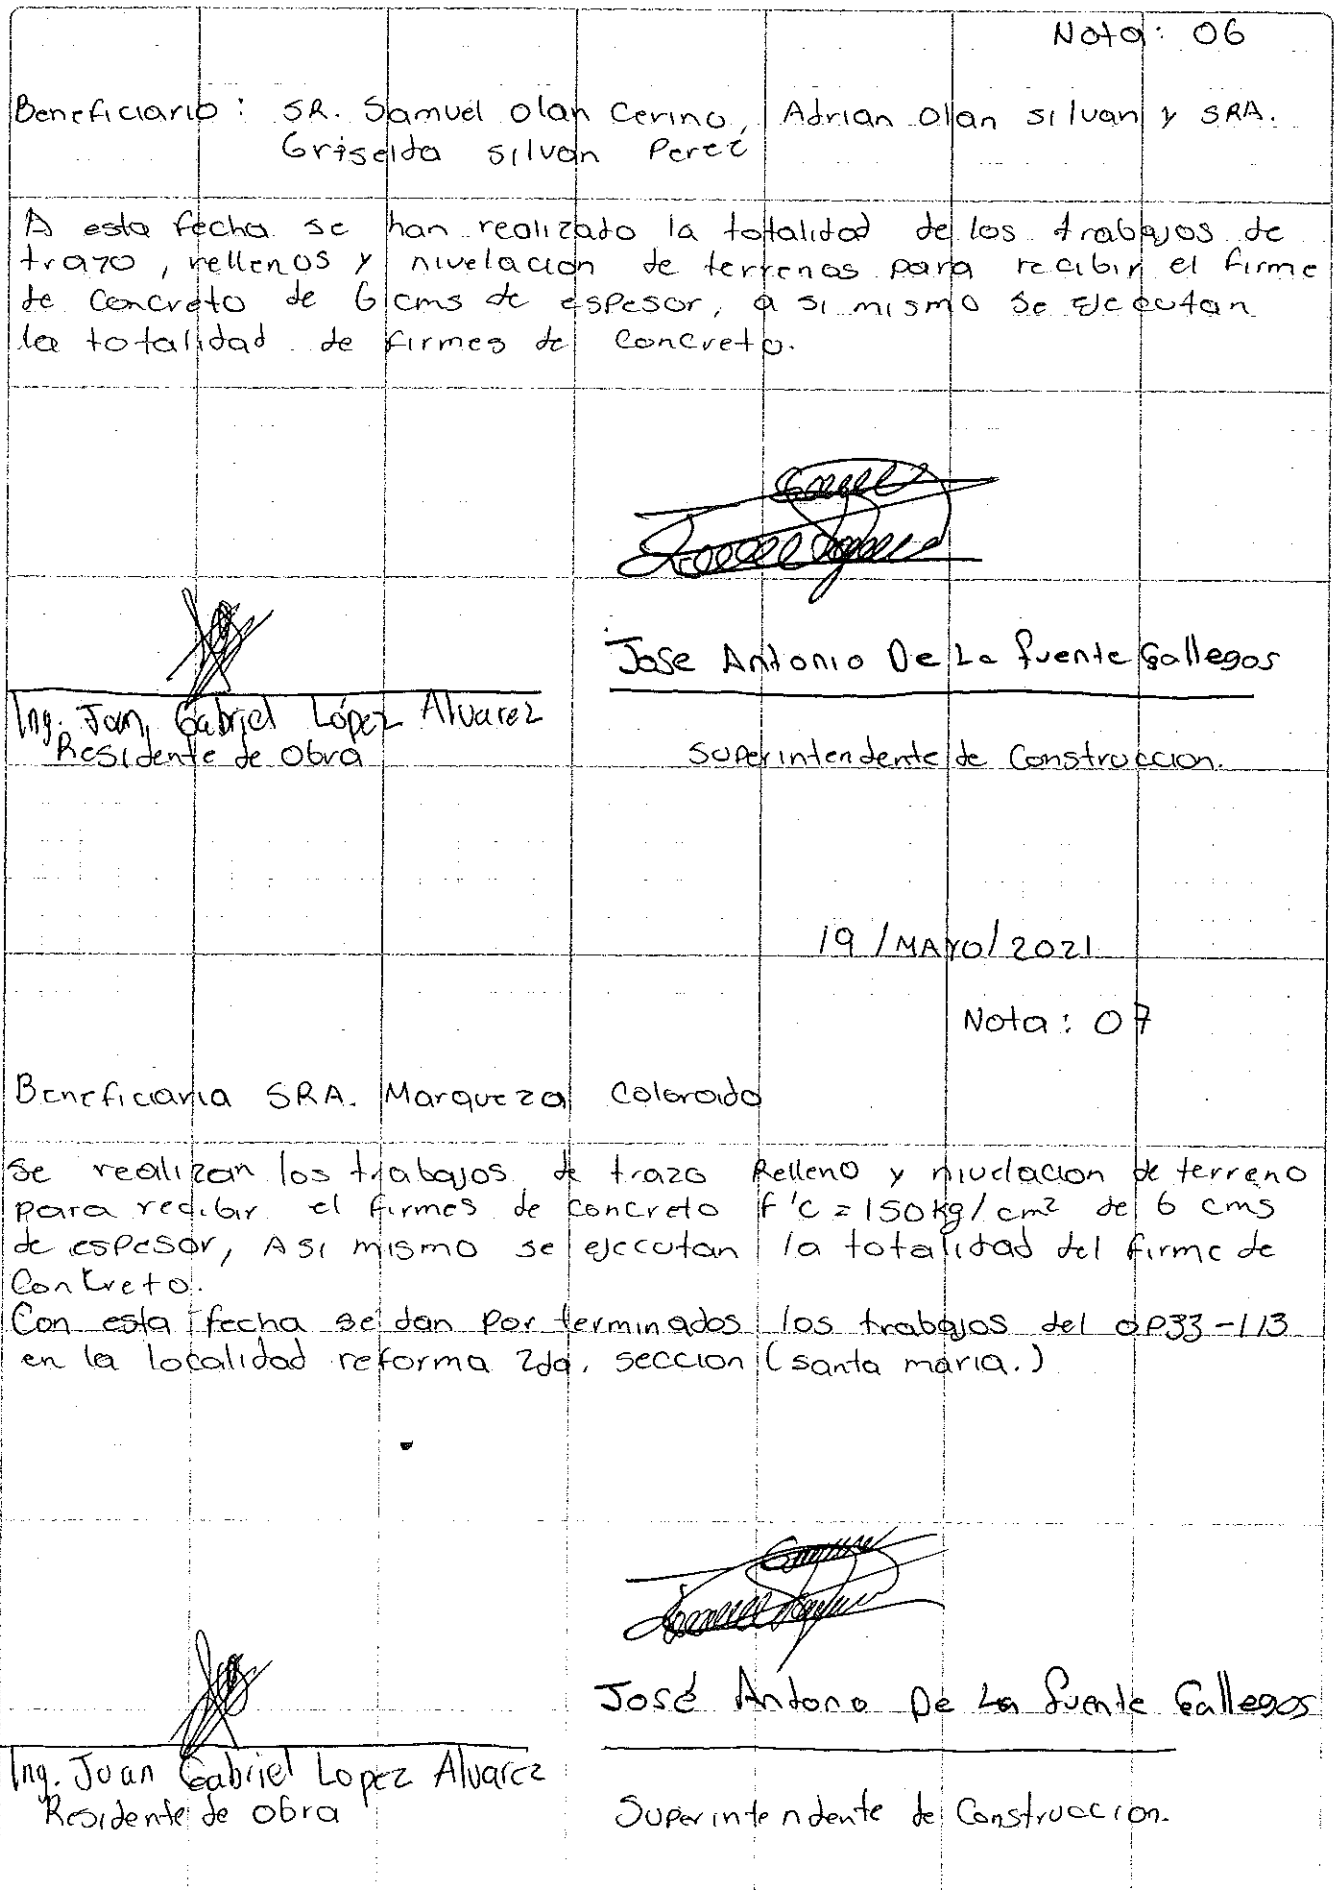 Nota: 06
Beneficiario: SR. Samuel Olan Cerino, Adrian Olan silvan y SRA.
Griselda silvan Perez
A esta fecha se han realizado la totalidad de los trabajos de
trazo, rellenos y nivelacion de terrenos para recibir el firme
de Concreto de 6 cms de espesor, a si mismo se ejecutan
la totalidad de firmes de Concreto.
Jose Antonio De La fuente Gallegos
Ing. Joan Gabriel López Alvarez
Residente de Obra
Superintendente de Construccion.
19/MAYO/2021
Nota: 07
Beneficiaria SRA. Marqueza Colorado
Se realizan los trabajos de trazo Relleno y nivelacion de terreno
para recibir el firmes de concreto F'C=150kg/cm² de 6 cms
de espesor, Asi mismo se ejecutan la totalidad del firme de
Concreto.
Con esta fecha se dan por terminados los trabajos del OP33-113
en la localidad reforma 2da. seccion (santa maria.)
José Antono De La fuente Gallegos
Ing. Juan Gabriel Lopez Alvarez
Residente de obra
Superintendente de Construccion.